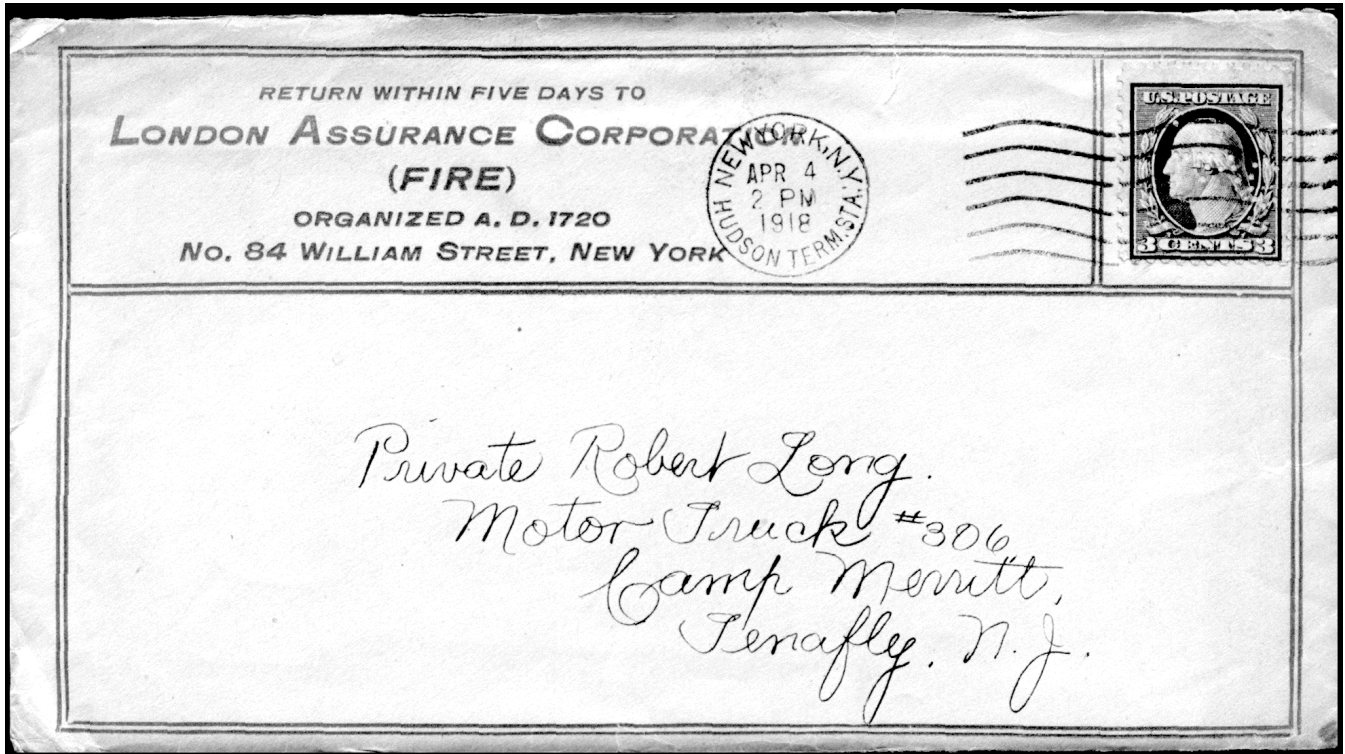 RETURN WITHIN FIVE DAYS TO
LONDON ASSURANCE CORPORATION
(FIRE)
ORGANIZED A. D. 1720
No. 84 WILLIAM STREET, NEW YORK
NEW YORK, N.Y.
APR 4
2 PM
1918
HUDSON TERM. STA.
U.S. POSTAGE
3 CENTS 3
Private Robert Long.
Motor Truck #306
Camp Merritt,
Tenafly. N. J.